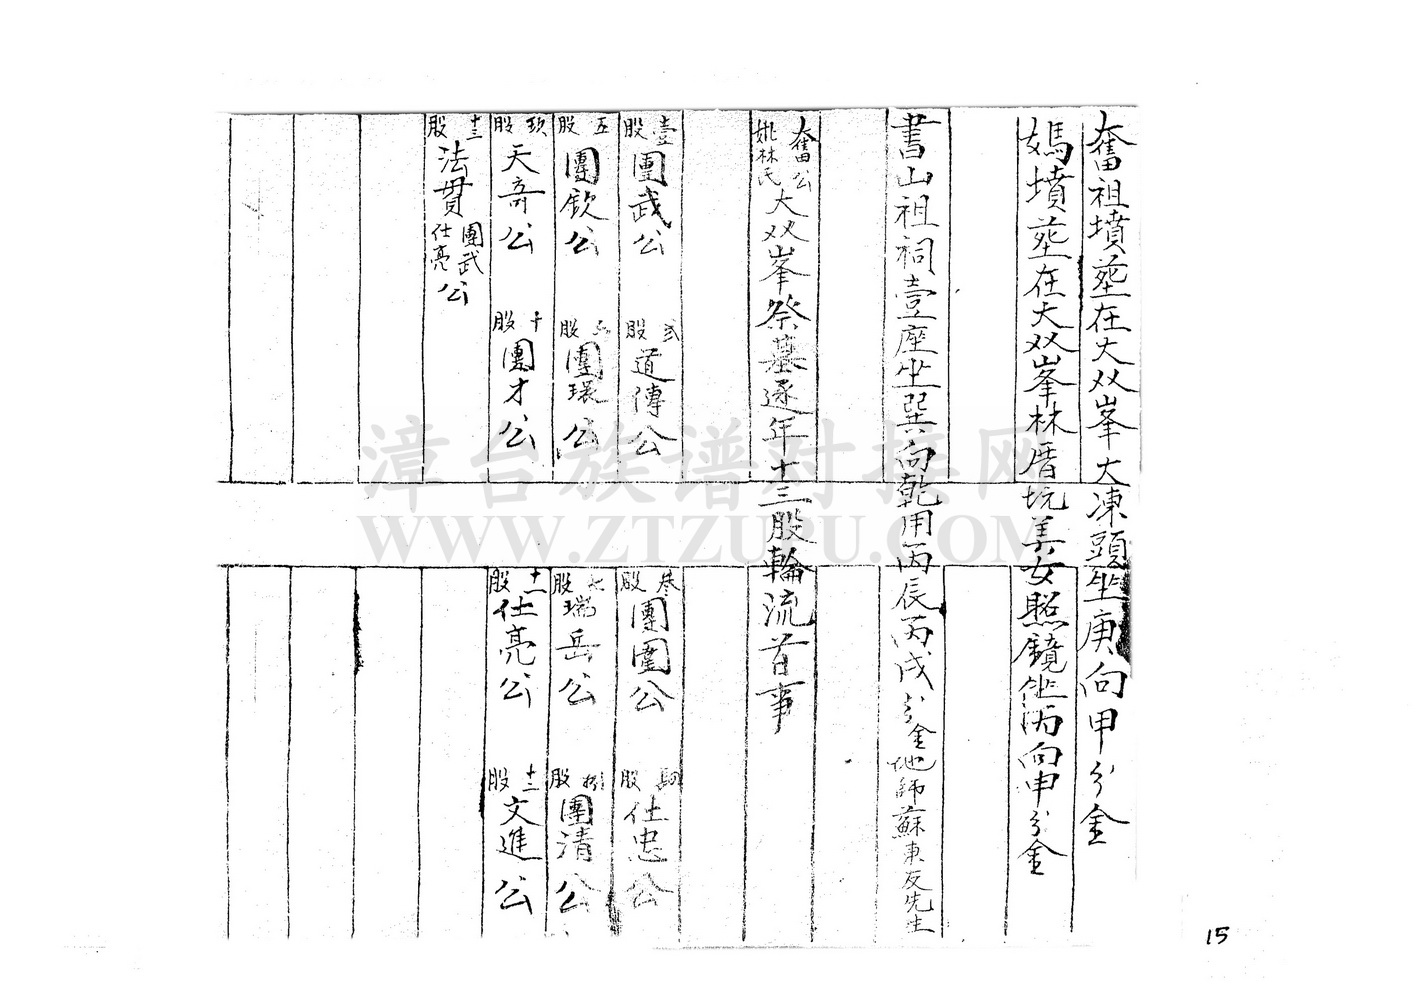 奮祖墳塟在大双峯大凍頭坐庚向甲分金
媽墳塟在大双峯林厝坑美女照鏡坐丙向申分金
書山祖祠壹座坐巽向乾用丙辰丙戌分金地師蘇東反先生
奮公妣林氏大双峯祭墓逐年十三股輪流首事
壹股團武公 貳股道傳公 叁股團圍公 肆股仕忠公
五股團欽公 六股團環公 七股瑞岳公 捌股團清公
玖股天奇公 十股團才公 十一股仕亮公 十二股文進公
十三股法貫團武仕亮公
漳台族谱对接网
WWW.ZTZUPU.COM
15